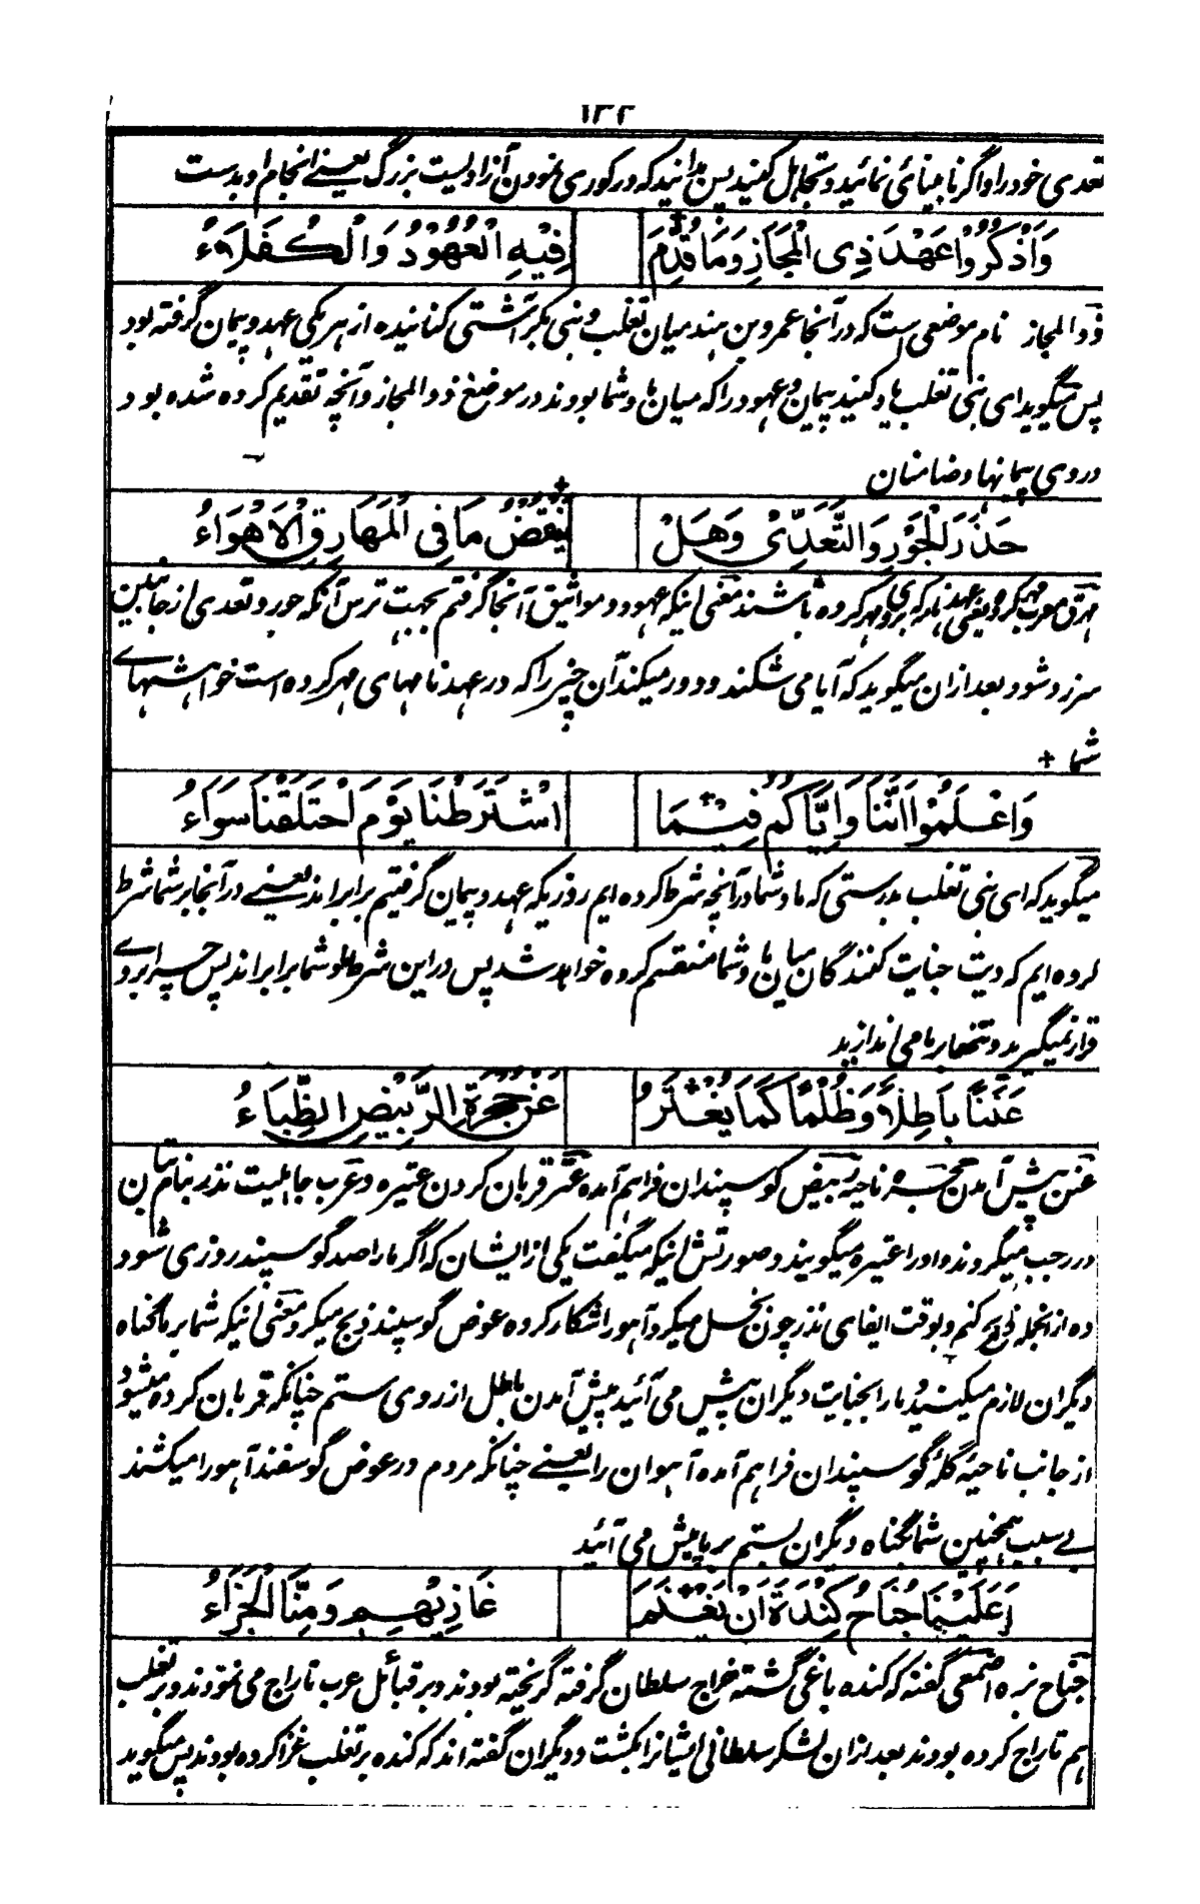 ۱۲۲
تعدی خود را و اگر نابینائی نمائید و تجاهل کنید پس بدانید که در کوری نمودن آزادیست بزرگ یعنے انجام او بدست
وَاذْكُرُوْا عَهْدَ ذِی الْمَجَازِ وَمَا قُدِّمَ فِيْهِ الْعُهُوْدُ وَالْكُفَلَاءُ
ذو المجاز نام موضعی است که در آنجا عمرو بن هند میان تغلب و بنی بکر آشتی کنانیده از هر یکی عهد و پیمان گرفته بود
پس میگوید ای بنی تغلب یاد کنید پیمان و عهود را که میان ما و شما بودند در موضع ذو المجاز و آنچه تقدیم کرده شده بود
در وی پیمانها و ضامنان
حَذَرَ الْجَوْرِ وَالتَّعَدِّیْ وَهَلْ يَنْقُضُ مَا فِی الْمَهَارِقِ الْاَهْوَاءُ
مهرق معرب مهر کرد یعنی عهد نامه که برو مهر کرده باشند معنی اینکه عهود و مواثیق آنجا گرفتم بجهت ترس آنکه جور و تعدی از جانبین
سرزد شود بعد ازان میگوید که آیا می شکند و دور میکند آن چیز را که در عهد نامهای مهر کرده است خواهشهاے
شما +
وَاعْلَمُوْا اَنَّنَا وَاِيَّاكُمْ فِيْمَا اشْتَرَطْنَا يَوْمَ احْتَلَفْنَا سَوَاءُ
میگوید که ای بنی تغلب بدرستی که ما و شما در آنچه شرط کرده ایم روزیکه عهد و پیمان گرفتیم برابر اند یعنے در آنجا بر شما شرط
کرده ایم که دیت جنایت کنندگان میان ما و شما منقسم کرده خواهد شد پس در این شرط ما و شما برابر اند پس چرا بروے
قرار نمیگیرید و تنها بر ما می اندازید
عَنَنًا بَاطِلًا وَظُلْمًا كَمَا يُعْتَرُ عَنْ حَجْرَةِ الرَّبِيْضِ الظِّبَاءُ
عنن پیش آمدن حجره ناحیه ربیض گوسپندان فراهم آمده عتر قربان کردن عتیره و عرب جاهلیت نذر بنام بتان
در رجب میگردند و او را عتیره میگویند و صورتش اینکه میگفت یکی از ایشان که اگر ما را صد گوسپند روزی شود
ده از انجمله ذبح کنم و بوقت ایفای نذر چون بخل میکرد آهو را شکار کرده عوض گوسپند ذبح میکرد معنی اینکه شما بر ما گناه
دیگران لازم میکنید و ما را بجنایت دیگران پیش می آئید پیش آمدن باطل از روی ستم چنانکه قربان کرده میشود
از جانب ناحیۂ گلۂ گوسپندان فراهم آمده آهوان را یعنے چنانکه مردم در عوض گوسفند آهو را میکشند
بے سبب همچنین شما بگناه دیگران بستم بر ما پیش می آئید
اَعَلَيْنَا جُنَاحُ كِنْدَةَ اَنْ يَغْنَمَ غَازِيْهِمْ وَمِنَّا الْجَزَاءُ
جناح بزه اصمعی گفته که کنده باغی گشته خراج سلطان گرفته گریخته بودند و بر قبائل عرب تاراج می نمودند و بر تغلب
هم تاراج کرده بودند بعد ازان لشکر سلطانی ایشانرا بکشت و دیگران گفته اند که کنده بر تغلب غزا کرده بودند پس میگوید